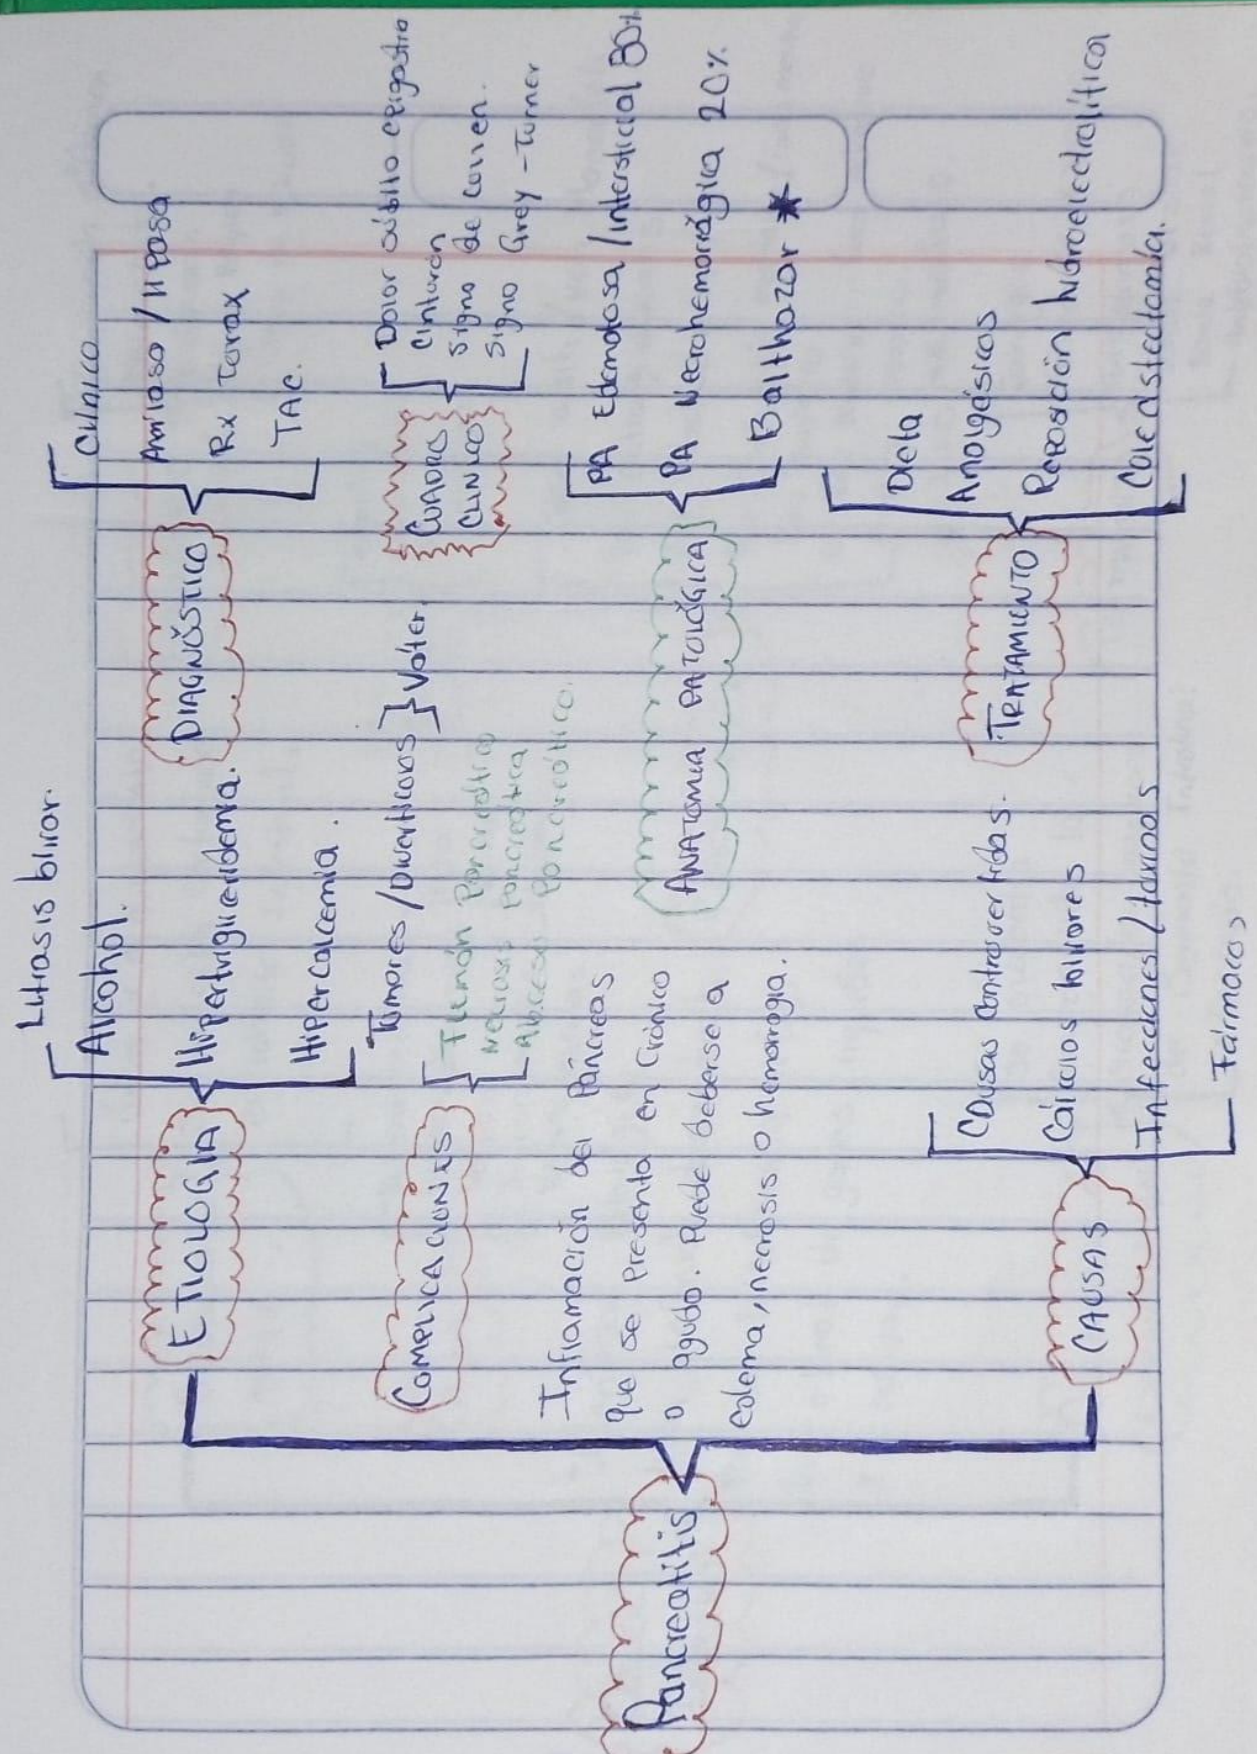 Pancreatitis
ETIOLOGIA
Litiasis biliar.
Alcohol.
Hipertrigliceridemia.
Hipercalcemia.
Tumores / Diverticulos } Váter.
COMPLICACIONES
Flemón Pancreático
Necrosis Pancreática
Absceso Pancreático.
Inflamación del Páncreas
que se presenta en Crónico
o agudo. Puede deberse a
edema, necrosis o hemorragia.
CAUSAS
Causas controvertidas.
Cálculos biliares
Infecciones / tóxicos
Fármacos
DIAGNÓSTICO
Clínico
Amilasa / lipasa
Rx Torax
TAC.
CUADRO
CLINICO
Dolor súbito epigastrio
Cinturón
Signo de Cullen.
Signo Grey - Turner
ANATOMIA PATOLÓGICA
PA Edematosa / Intersticial 80%
PA Necrohemorrágica 20%
Balthazar *
TRATAMIENTO
Dieta
Analgésicos
Reposición hidroelectrolítica
Colecistectomía.